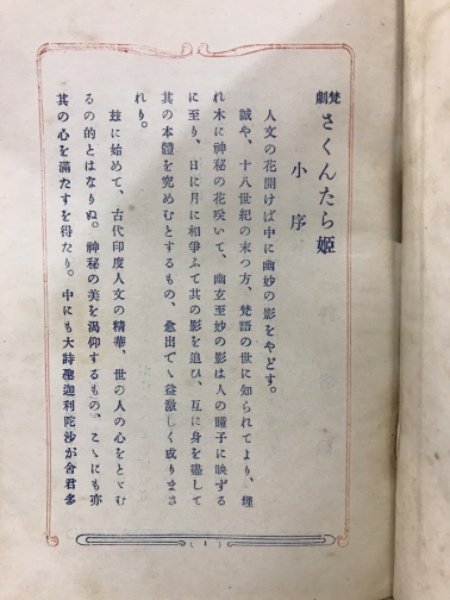 梵劇 さくんたら姫
小序
人文の花開けば中に幽妙の影をやどす。
誠や、十八世紀の末つ方、梵語の世に知られてより、埋
れ木に神秘の花咲いて、幽玄至妙の影は人の瞳子に映ずる
に至り、日に月に相爭ふて其の影を追ひ、互に身を盡して
其の本體を究めむとするもの、愈出でゝ益激しく成りまさ
れり。
玆に始めて、古代印度人文の精華、世の人の心をとゞむ
るの的とはなりぬ。神秘の美を渇仰するもの、こゝにも亦
其の心を滿たすを得たり。中にも大詩聖迦利陀沙が舍君多
1